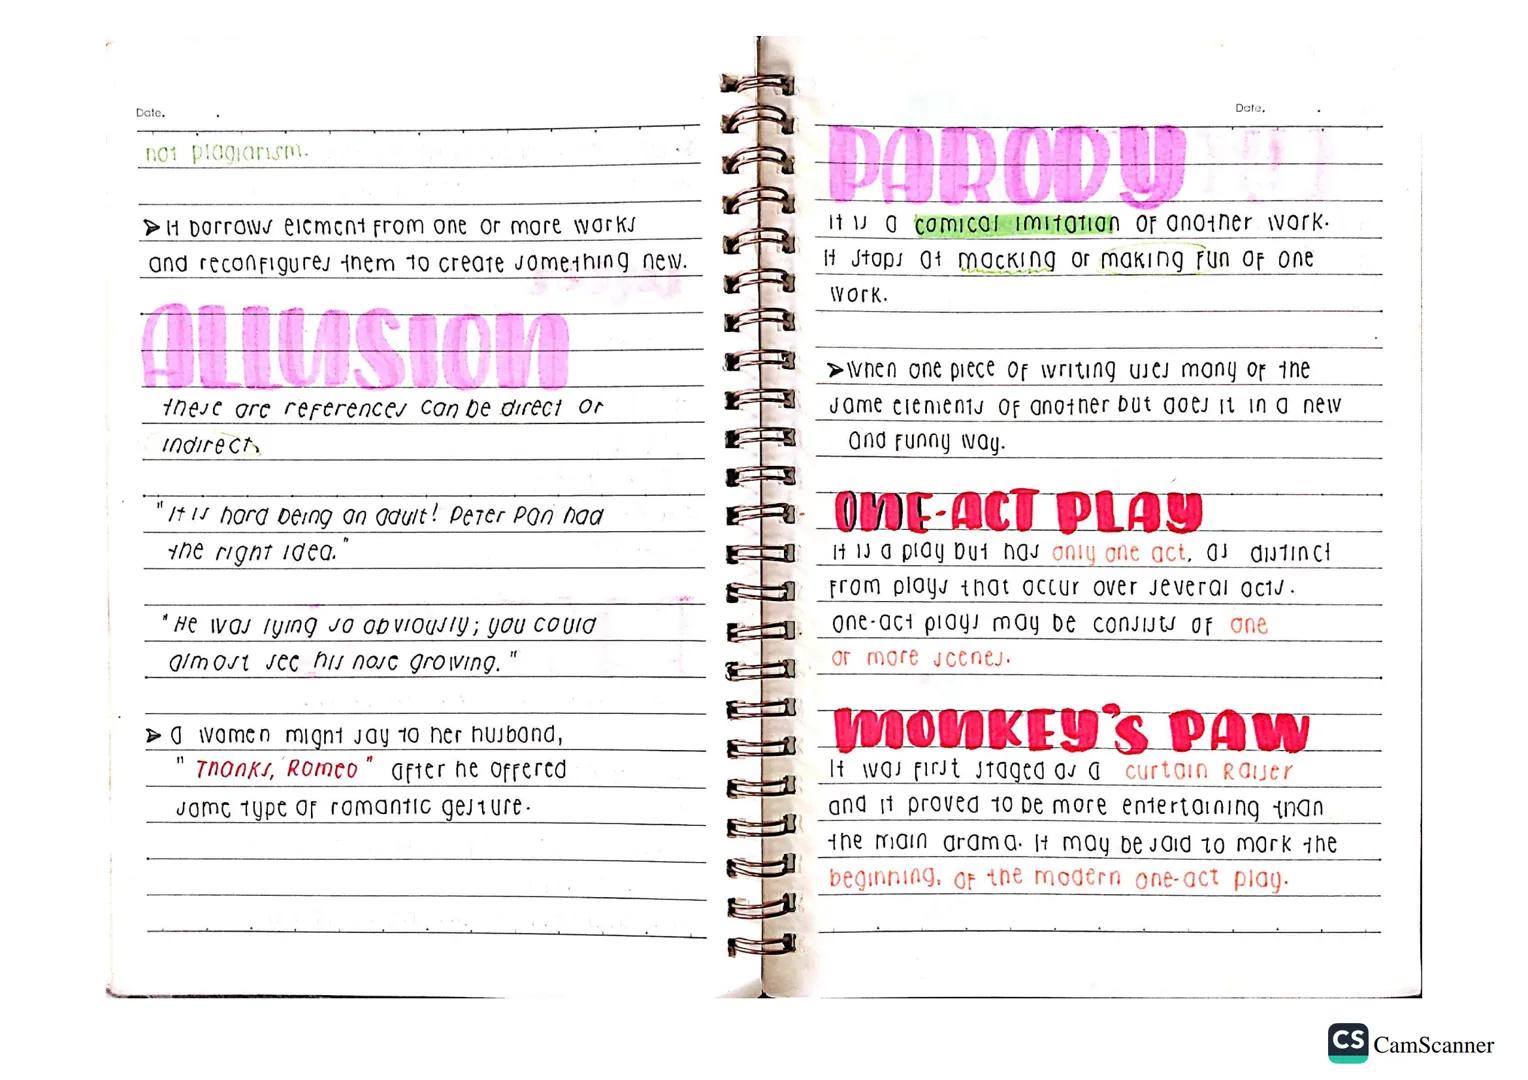 Date.
not plagiarism.
➤ It borrows element from one or more works
and reconfigures them to create something new.
ALLUSION
these are references can be direct or
indirect.
"It is hard being an adult! Peter Pan had
the right idea."
"He was lying so obviously; you could
almost see his nose growing."
➤ a women might say to her husband,
"Thanks, Romeo" after he offered
some type of romantic gesture.
Date.
PARODY
it is a comical imitation of another work.
It stops at mocking or making fun of one
work.
➤ When one piece of writing uses many of the
same elements of another but does it in a new
and funny way.
ONE-ACT PLAY
it is a play but has only one act, as distinct
from plays that occur over several acts.
one-act plays may be consists of one
or more scenes.
MONKEY'S PAW
It was first staged as a curtain raiser
and it proved to be more entertaining than
the main drama. It may be said to mark the
beginning, of the modern one-act play.
CS CamScanner